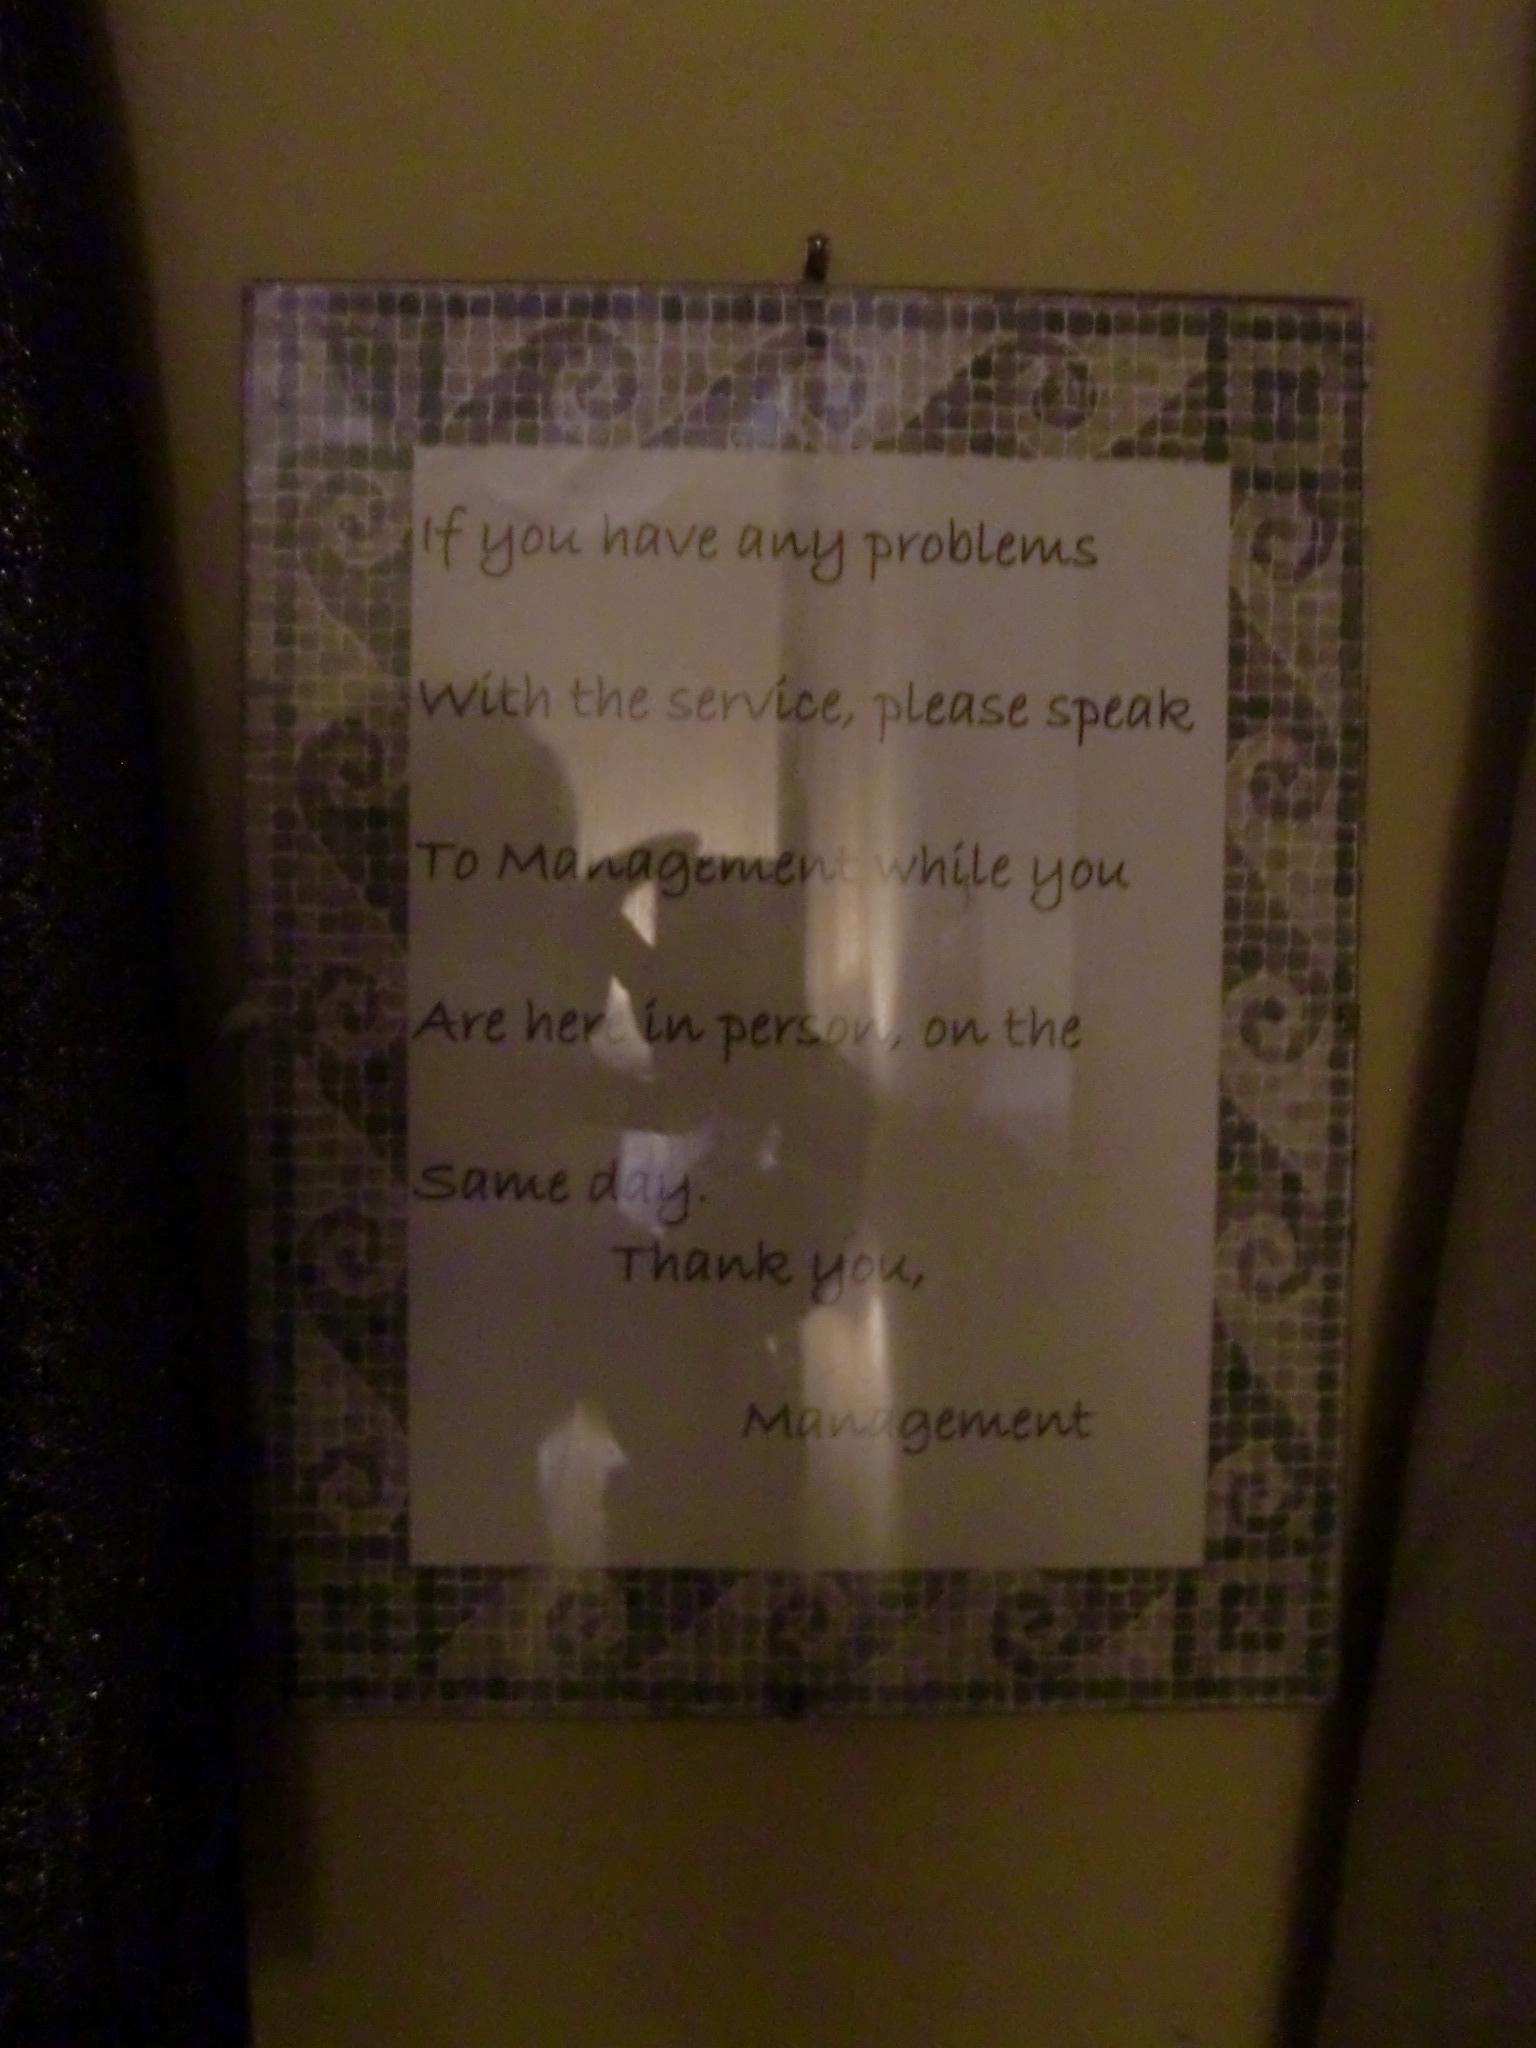 If you have any problems
With the service, please speak
To Management while you
Are here in person, on the
Same day.
Thank you,
Management